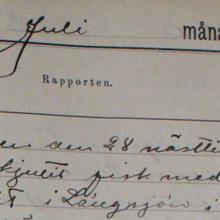 Juli måna
Rapporten.
en den 28 nästli
skjutit fisk med
t i Långsjön i